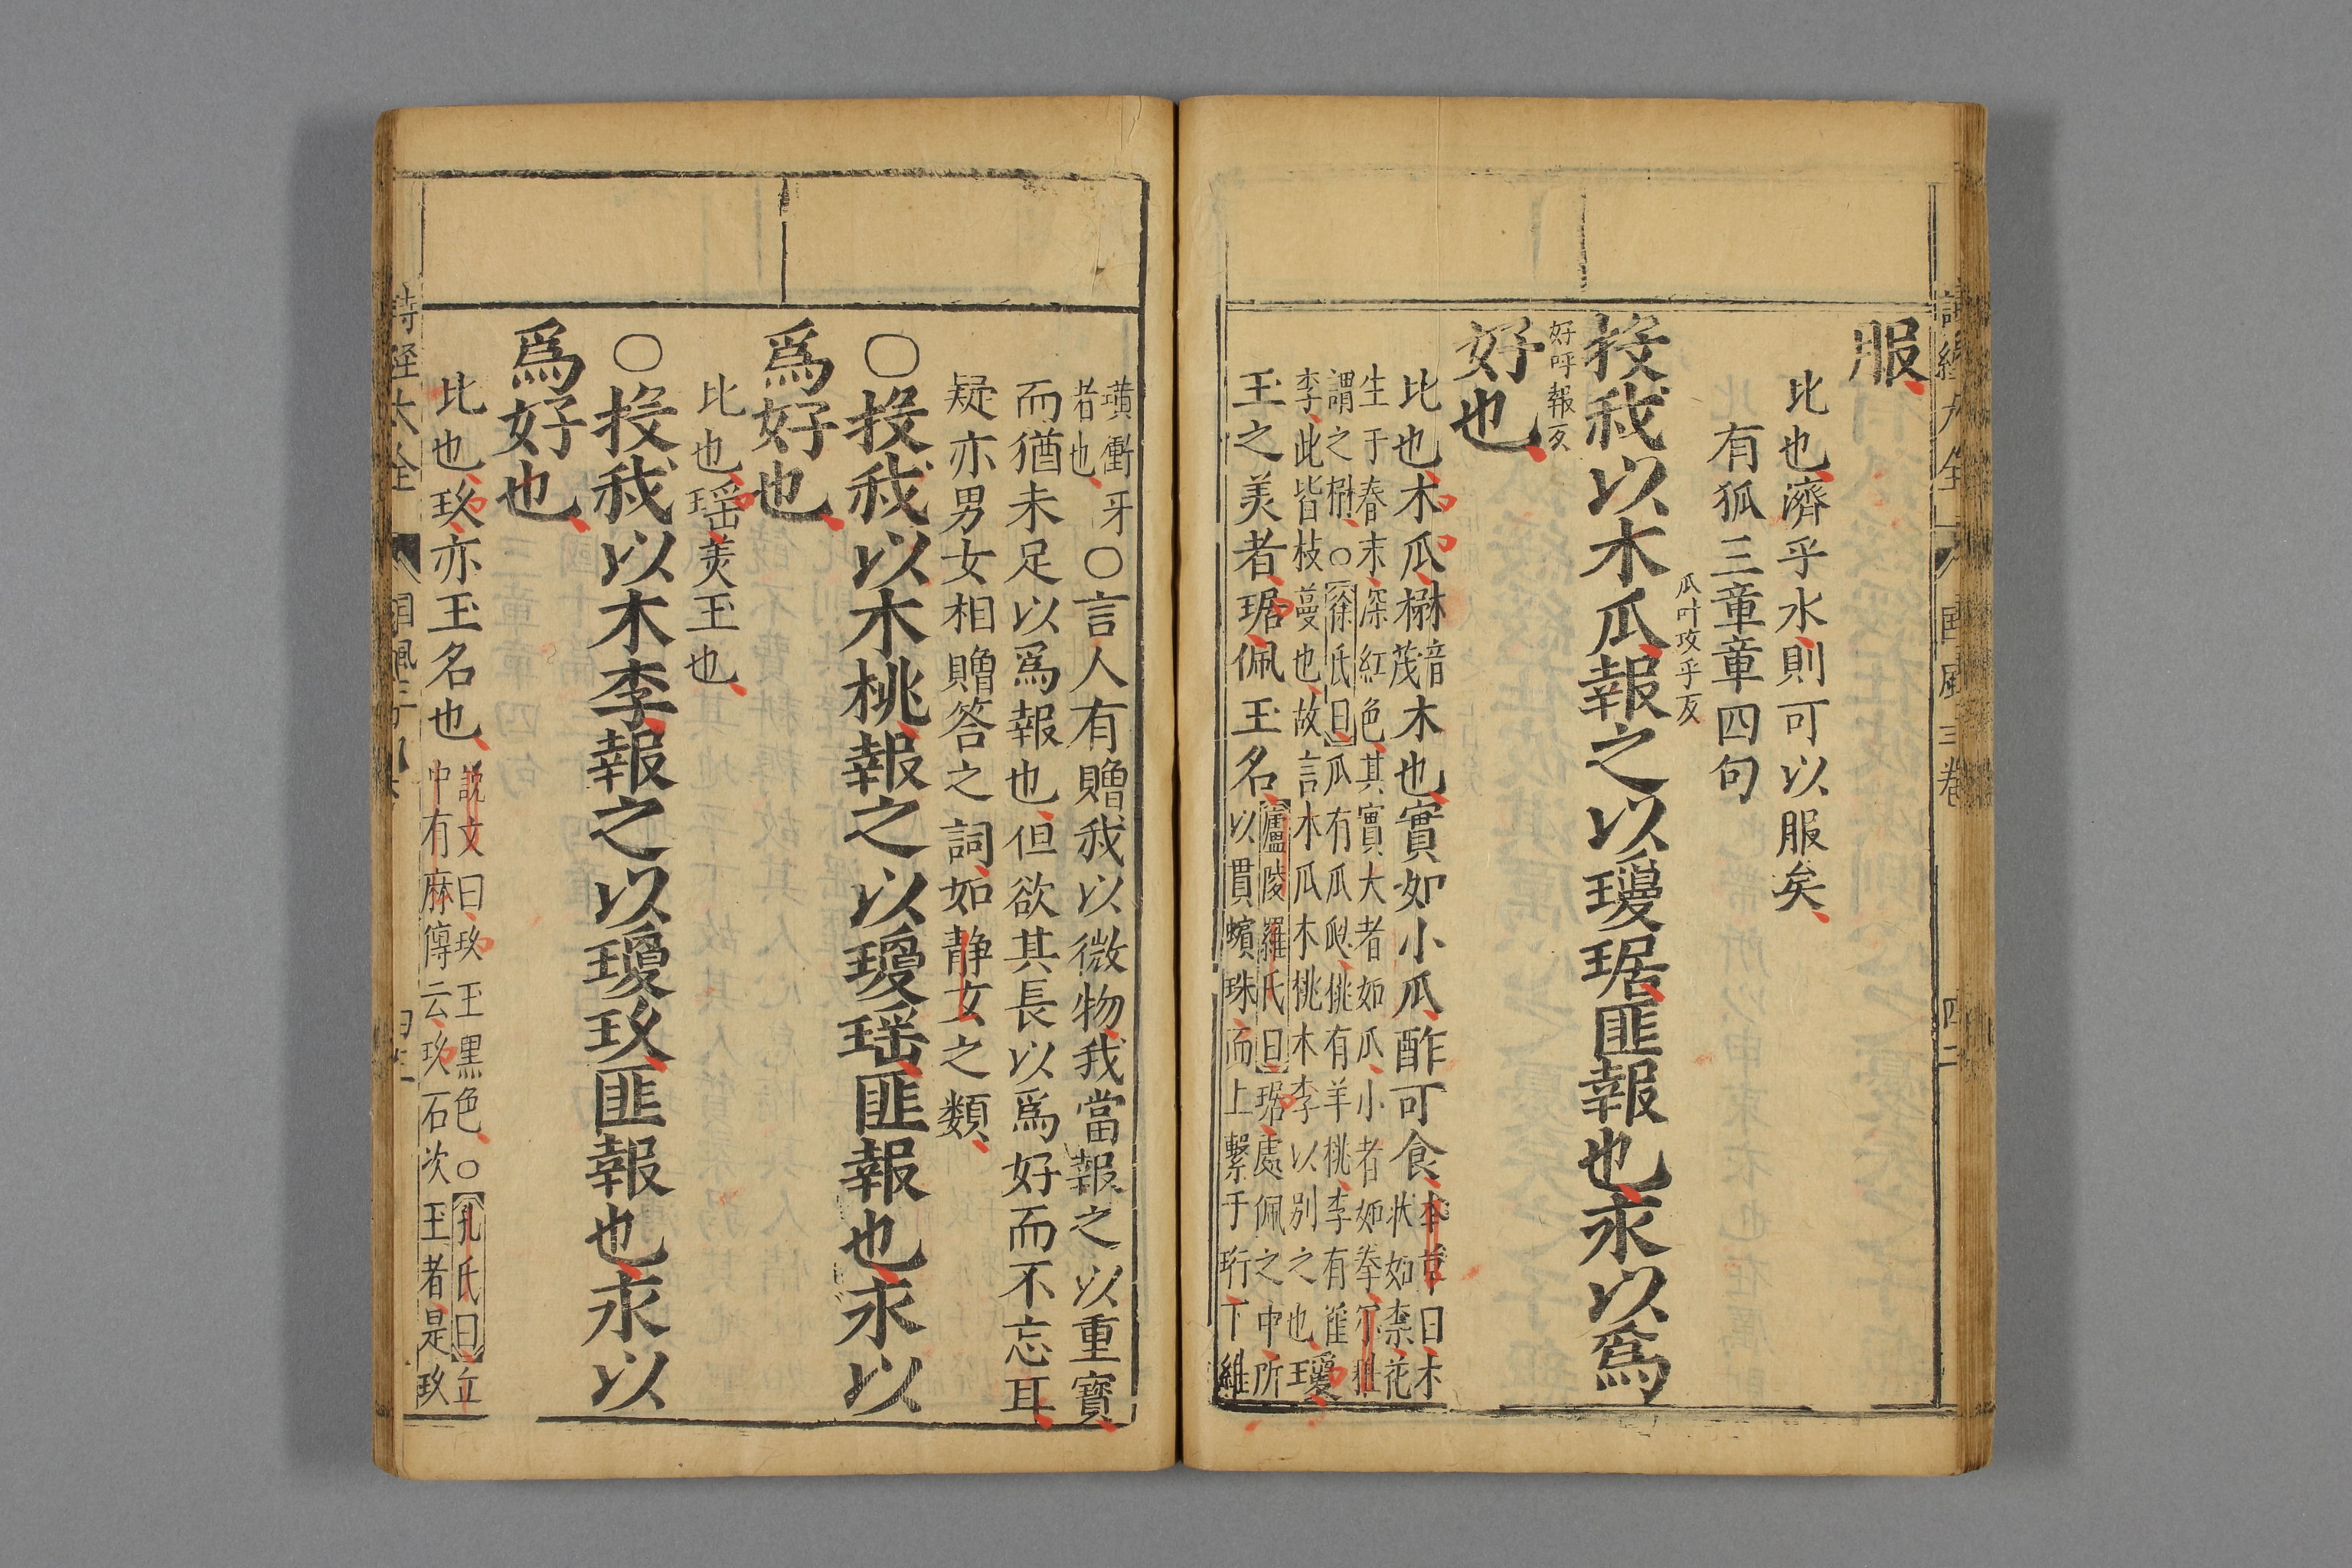 服
比也濟乎水則可以服矣
有狐三章章四句
投我以木瓜報之以瓊琚匪報也永以爲
瓜叶攻乎反
好呼報反
好也
比也木瓜楙木也實如小瓜酢可食
音茂
本草曰木
狀如柰花
生于春末深紅色其實大者如瓜小者如拳
謂之楙○徐氏曰瓜有瓜瓞桃有羊桃李有雀
李此皆枝蔓也故言木瓜木桃木李以別之也瓊
玉之美者琚佩玉名
廬陵羅氏曰琚處佩之中所
以貫蠙珠而上繫于珩下維
璜衝牙
者也
○言人有贈我以微物我當報之以重寶
而猶未足以爲報也但欲其長以爲好而不忘耳
疑亦男女相贈答之詞如静女之類
○投我以木桃報之以瓊瑶匪報也永以
爲好也
比也瑶美玉也
○投我以木李報之以瓊玖匪報也永以
爲好也
比也玖亦玉名也
說文曰玖玉黒色○孔氏曰丘
中有麻傳云玖石次玉者是玖